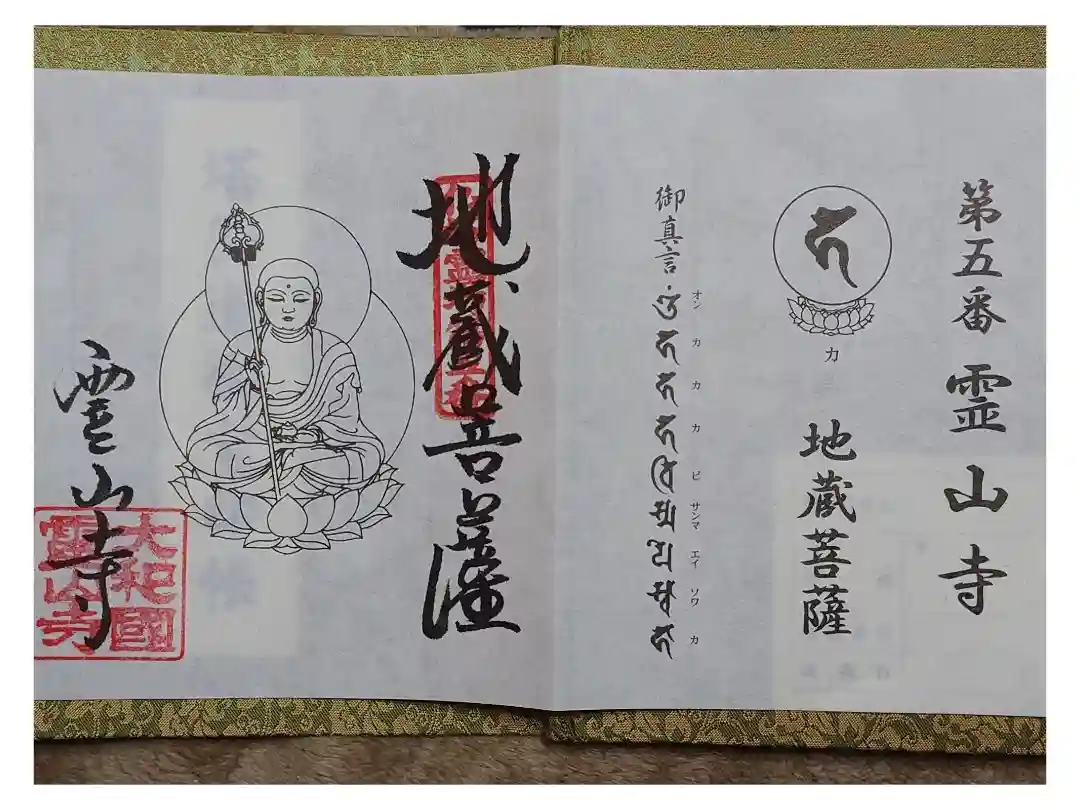 第五番 霊山寺
カ
地蔵菩薩
御真言
オン カ カ カ ビ サンマ エイ ソワ カ
地蔵菩薩
霊山寺
大和國
霊山寺